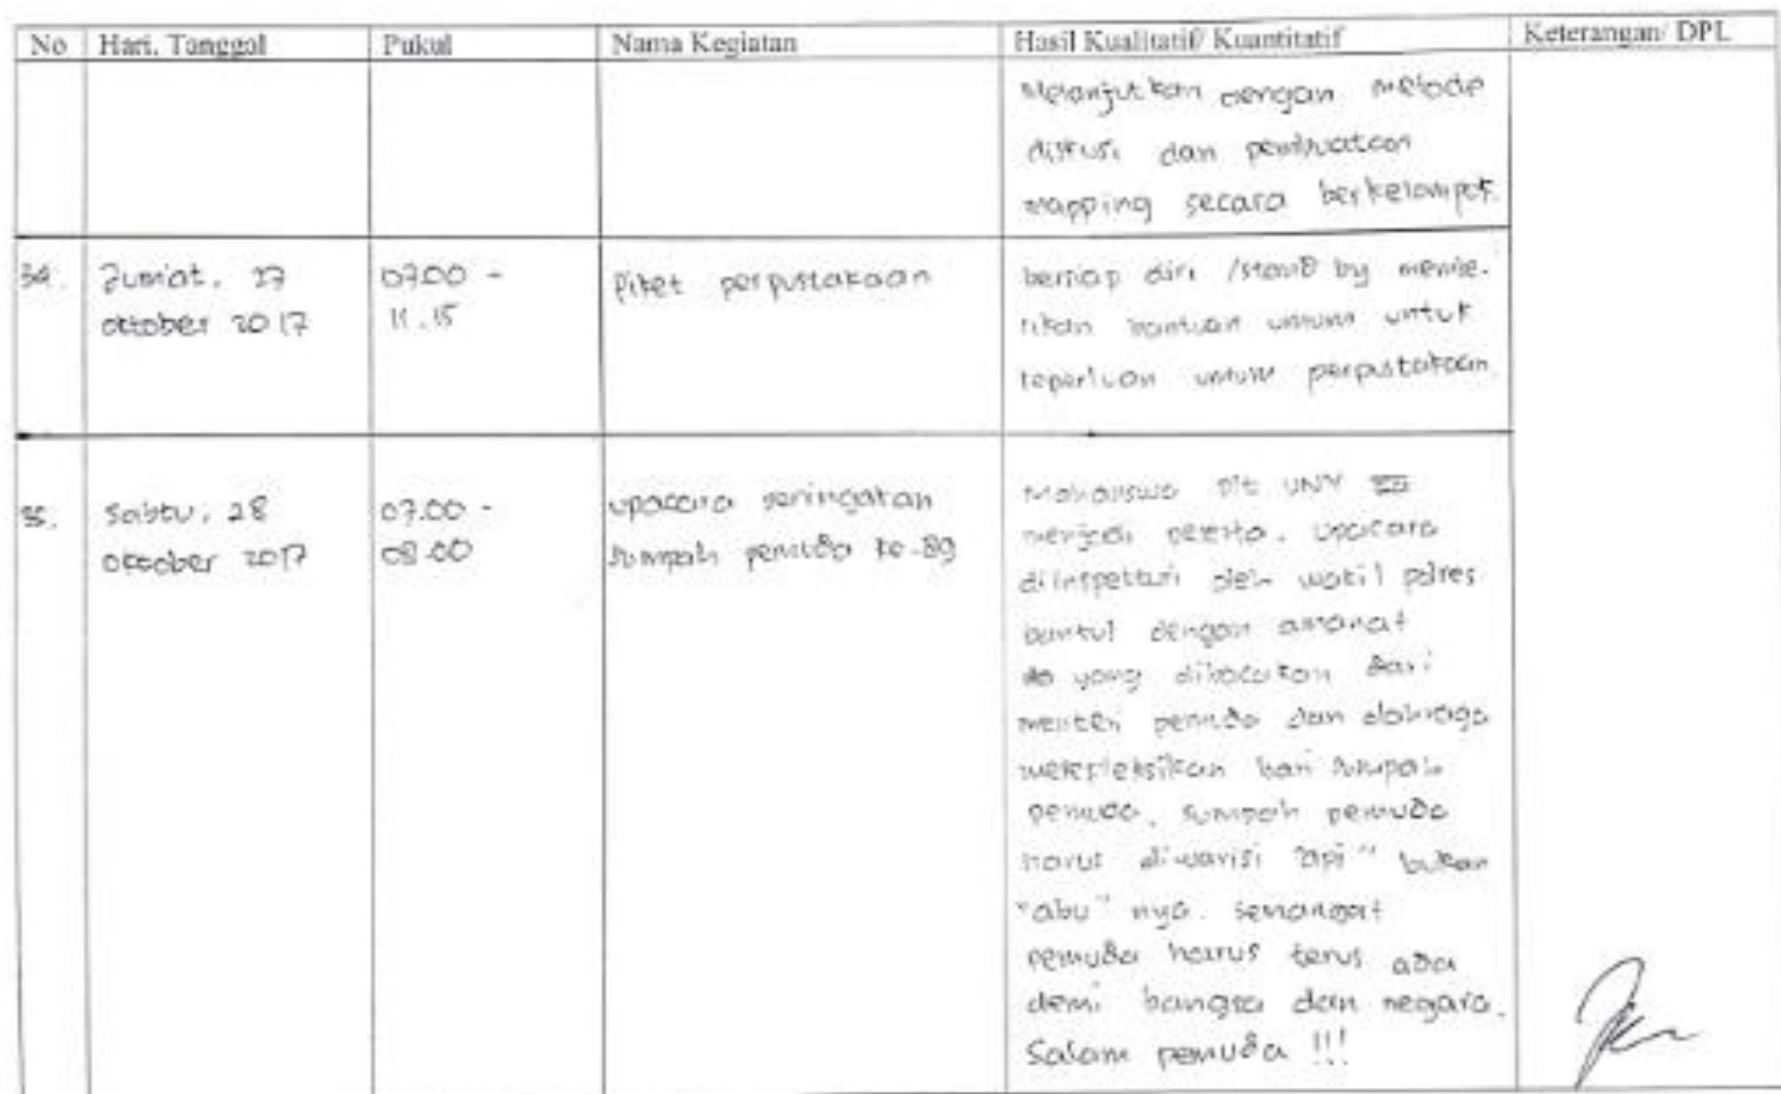 No Hari, Tanggal Pukul Nama Kegiatan Hasil Kualitatif/ Kuantitatif Keterangan/ DPL
Melanjutkan dengan metode
diskusi dan pembuatan
mapping secara berkelompok.
34. Jum'at, 27 07.00 - Piket perpustakaan bersiap diri /stand by membe-
oktober 2017 11.15 rikan bantuan umum untuk
keperluan umum perpustakaan.
35. Sabtu, 28 07.00 - upacara peringatan Mahasiswa plt UNY
oktober 2017 08.00 sumpah pemuda ke-89 menjadi peserta. upacara
diinspekturi oleh wakil polres
bantul dengan amanat
yang dibacakan dari
menteri pemuda dan olahraga
merefleksikan hari sumpah
pemuda. sumpah pemuda
harus diwarisi "api" bukan
"abu" nya. semangat
pemuda harus terus ada
demi bangsa dan negara.
Salam pemuda !!!